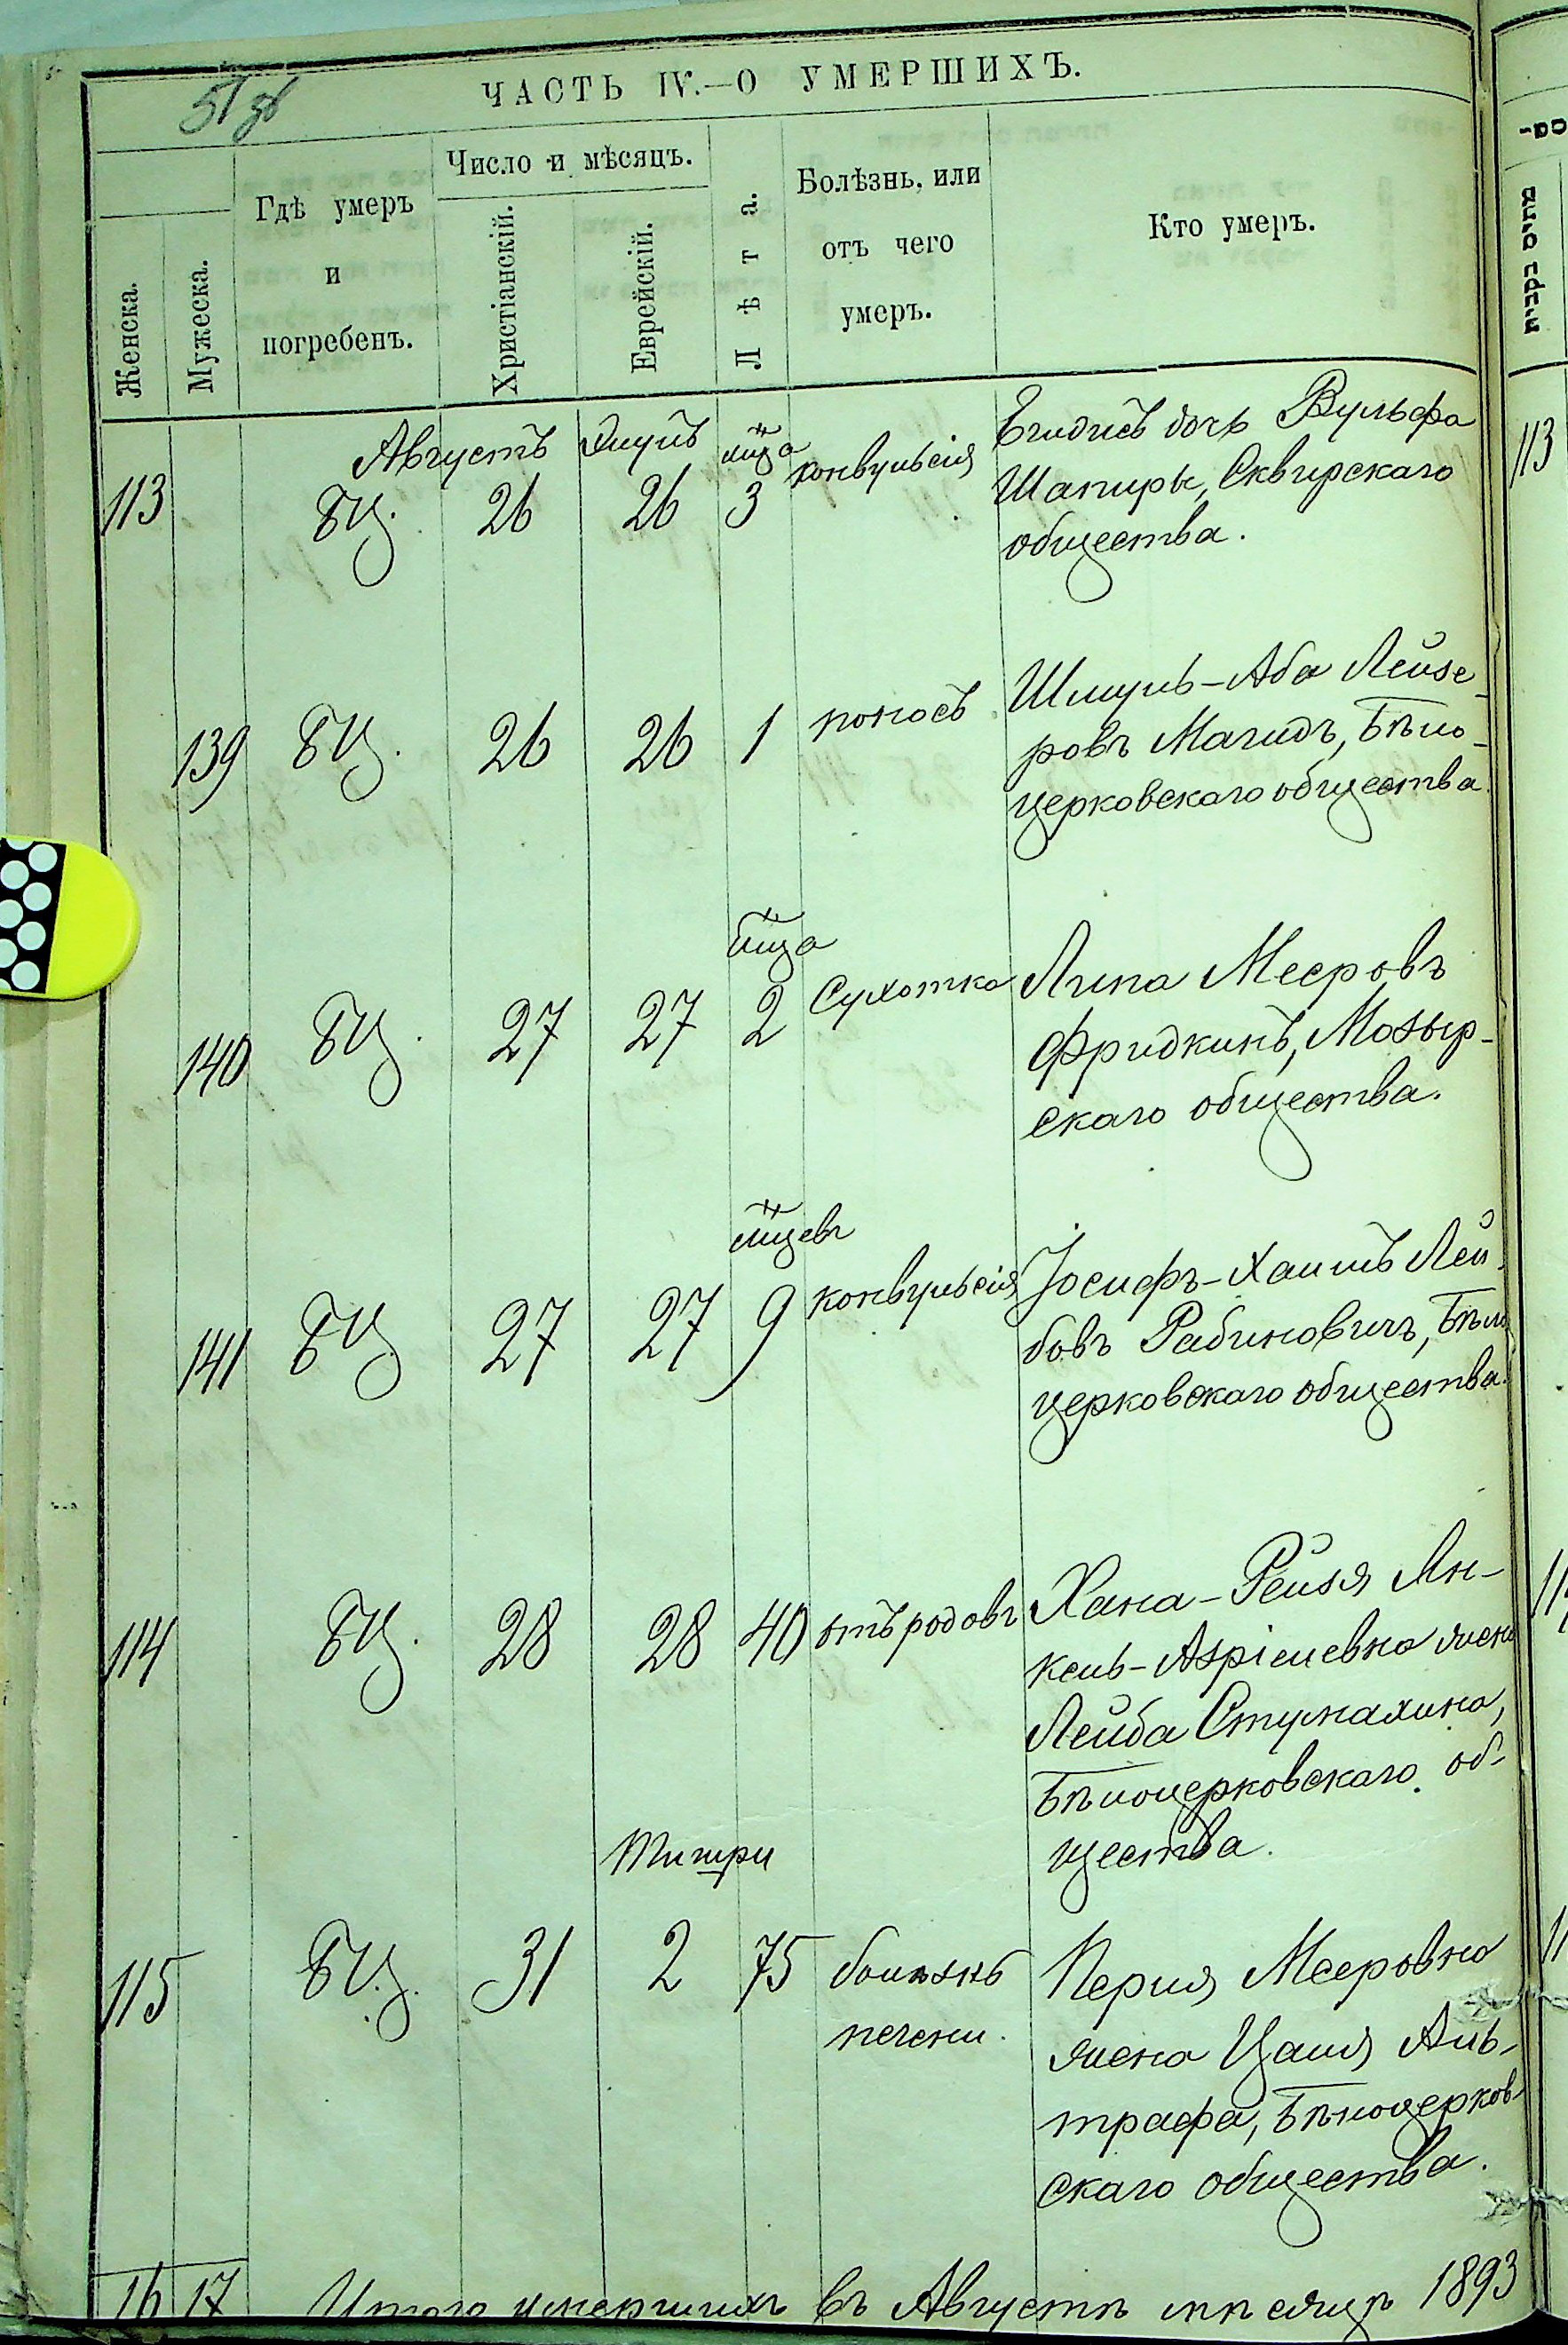 ЧАСТЬ IV.—О УМЕРШИХЪ.
Женска.
Мужеска.
Гдѣ умеръ
и
погребенъ.
Число и мѣсяцъ.
Христіанскій.
Еврейскій.
Лѣта.
Болѣзнь, или
отъ чего
умеръ.
Кто умеръ.
Августъ Элулъ м-ца
113 БЦ. 26 26 3 конвульсія
дочь Вульфа
Шапиры, Сквирскаго
общества.
139 БЦ. 26 26 1 поносъ
Шмуль-Аба Лейзе-
ровъ Магидъ, Бѣло-
церковскаго общества.
м-ца
140 БЦ. 27 27 2 Сухотка
Липа Мееровъ
Фридкинъ, Мозыр-
скаго общества.
м-цевъ
141 БЦ. 27 27 9 конвульсія
Іосифъ-Хаимъ Лей-
бовъ Рабиновичъ, Бѣло
церковскаго общества.
114 БЦ. 28 28 40 отъ родовъ
Хана-Рейзя Ян-
кель-Азріелевна жена
Лейба Ступахина,
Бѣлоцерковскаго об-
щества.
Тишри
115 БЦ. 31 2 75 болѣзнь
печени.
Перля Мееровна
жена Цаля Аль-
трафа, Бѣлоцерков-
скаго общества.
16 17 Итого умершихъ въ Августѣ мѣсяцѣ 1893
113